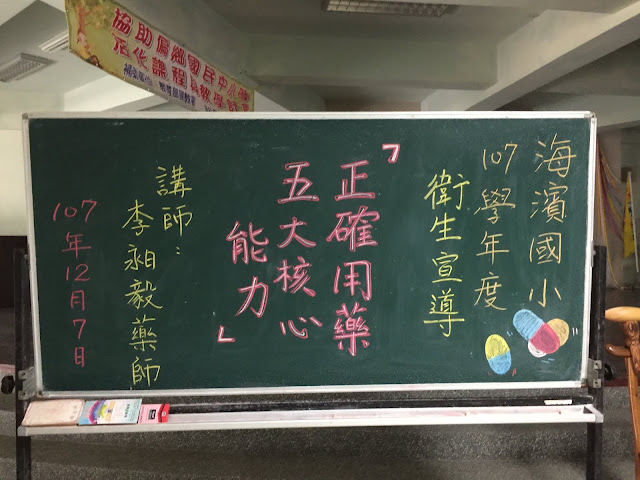 協助偏鄉國民中小學
海濱國小
107學年度
衛生宣導
「正確用藥
五大核心
能力」
講師：
李昶毅藥師
107年12月7日